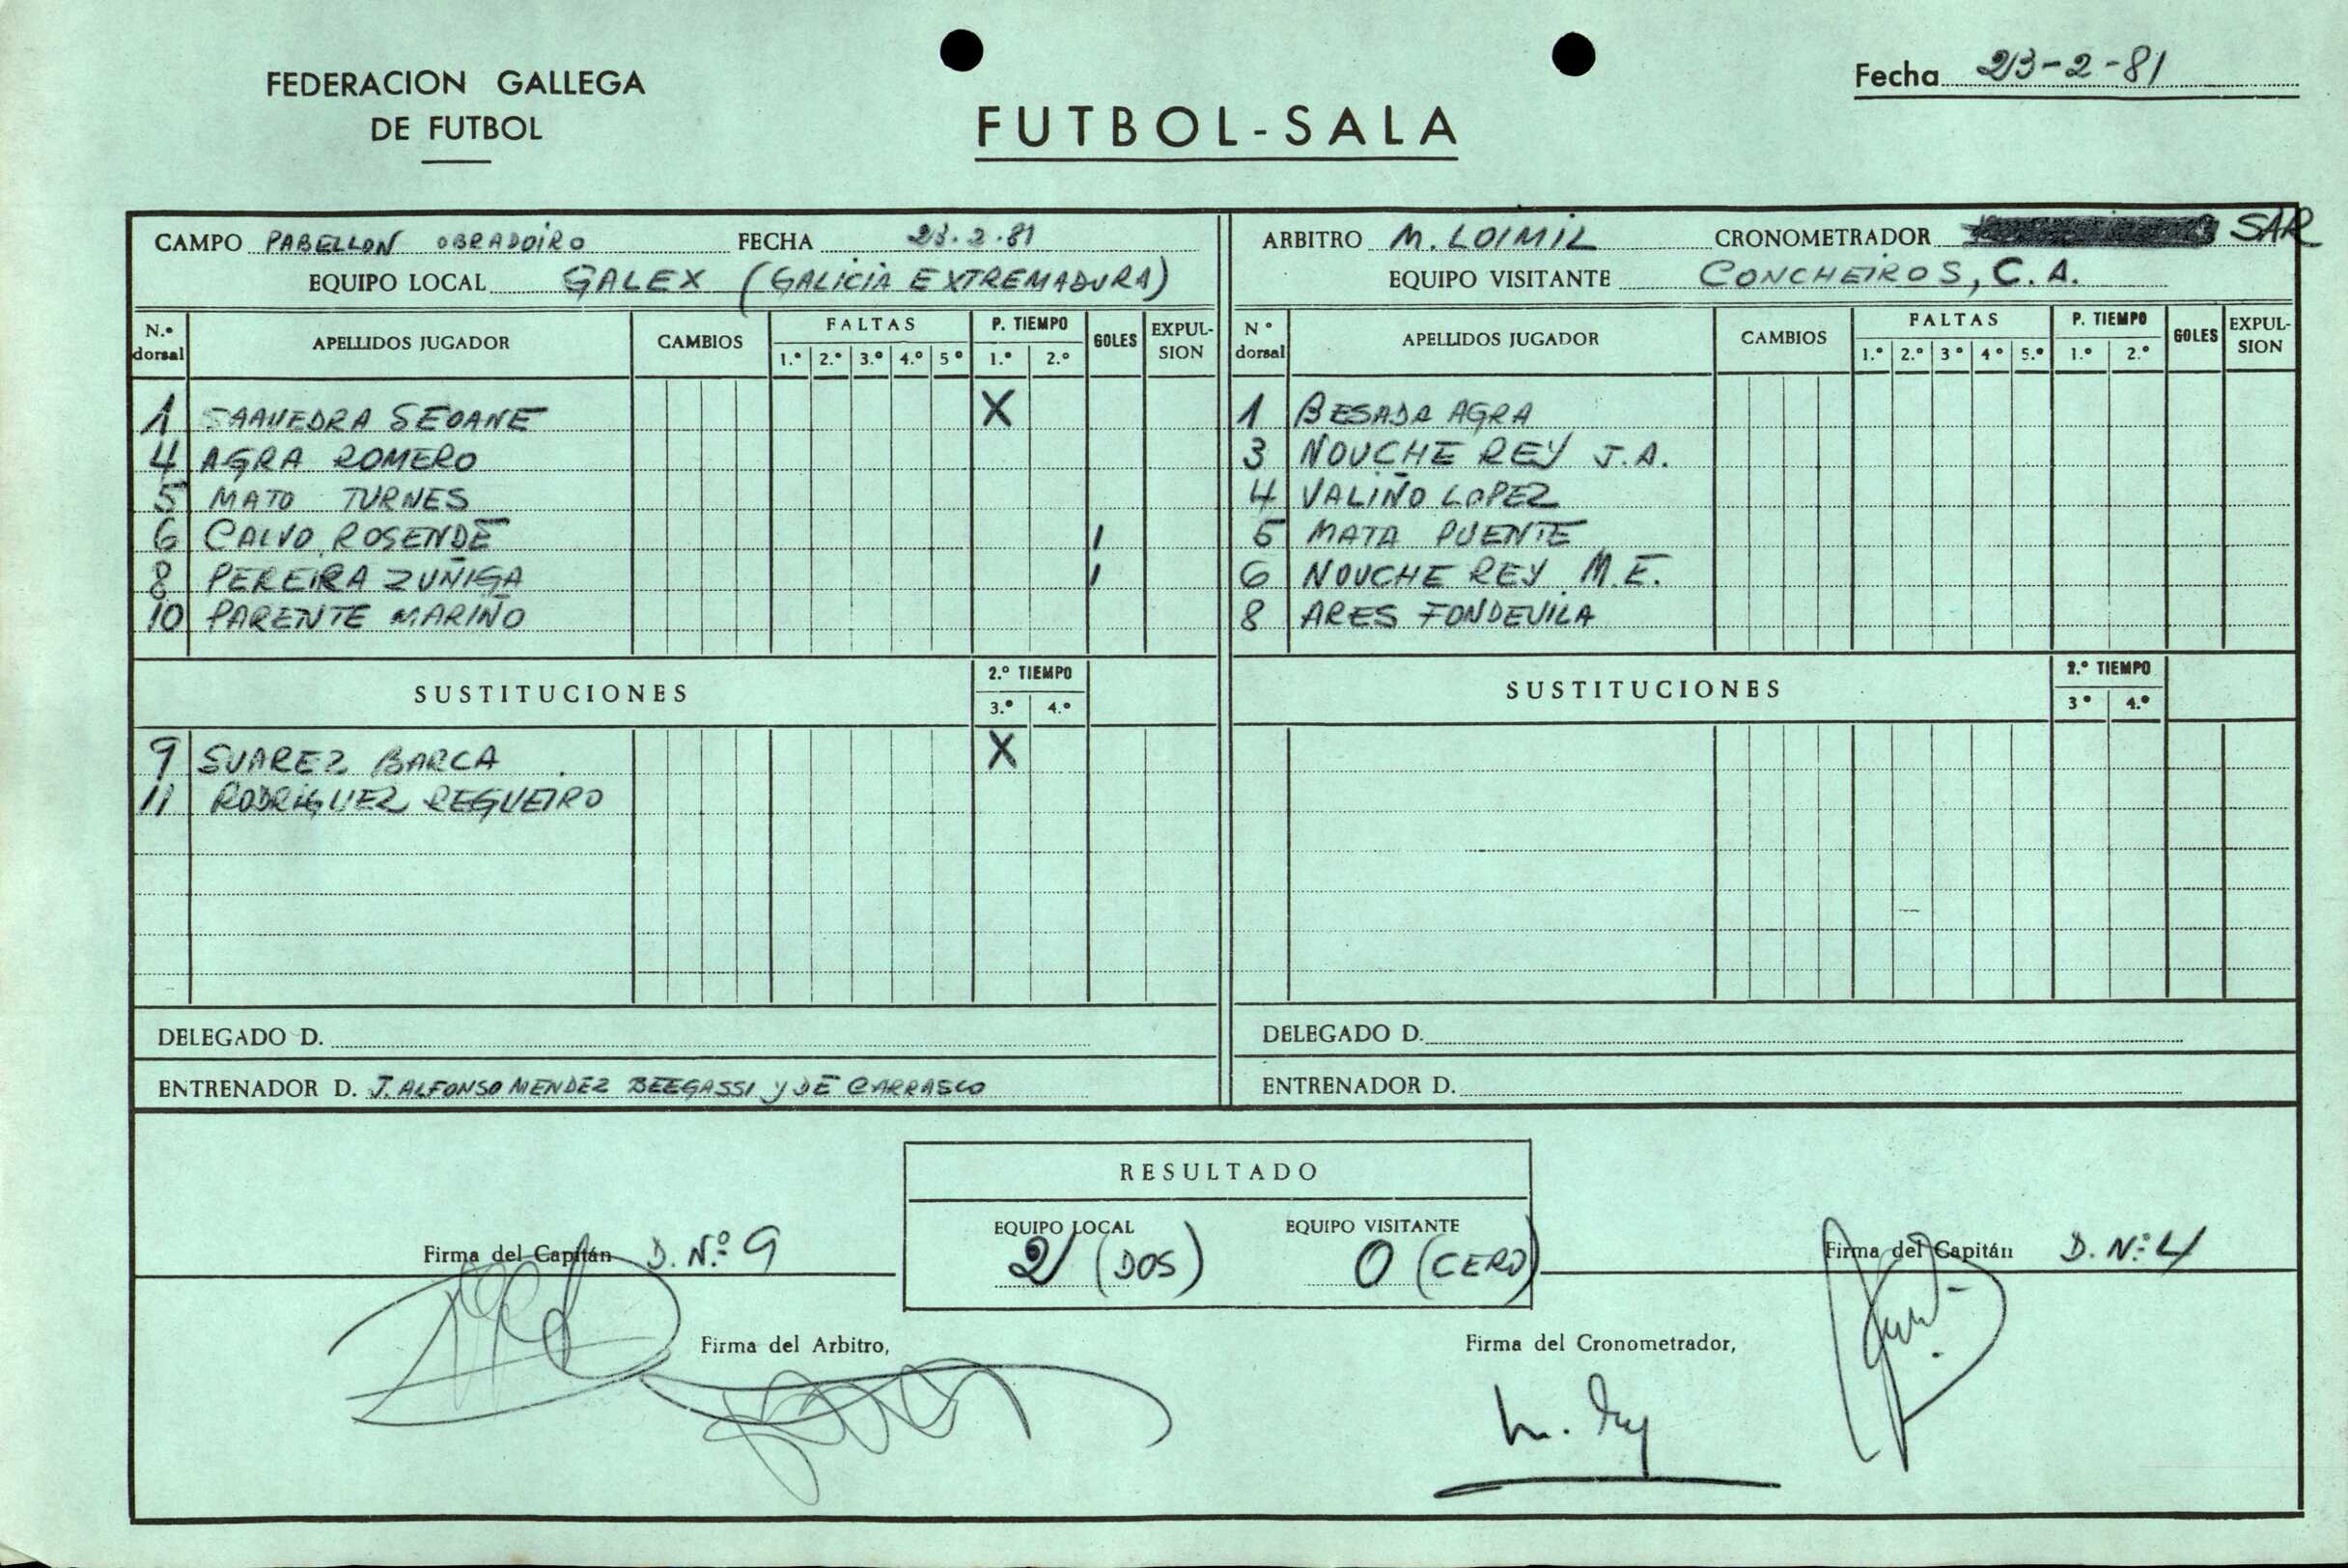 FEDERACION GALLEGA
DE FUTBOL
FUTBOL-SALA
Fecha 23-2-81
CAMPO PABELLON OBRADOIRO FECHA 23.2.81
EQUIPO LOCAL GALEX (GALICIA EXTREMADURA)
N.º dorsal APELLIDOS JUGADOR CAMBIOS FALTAS 1.º 2.º 3.º 4.º 5º P. TIEMPO 1.º 2.º GOLES EXPUL-SION
1 SAAVEDRA SEOANE X
4 AGRA ROMERO
5 MATO TURNES
6 CALVO ROSENDE 1
8 PEREIRA ZUÑIGA 1
10 PARENTE MARIÑO
SUSTITUCIONES 2.º TIEMPO 3.º 4.º
9 SUAREZ BARCA X
11 RODRIGUEZ REGUEIRO
DELEGADO D.
ENTRENADOR D. J. ALFONSO MENDEZ BEEGASSI Y DE CARRASCO
ARBITRO M. LOIMIL CRONOMETRADOR SAR
EQUIPO VISITANTE CONCHEIROS, C. A.
Nº dorsal APELLIDOS JUGADOR CAMBIOS FALTAS 1.º 2.º 3º 4º 5.º P. TIEMPO 1.º 2.º GOLES EXPUL-SION
1 BESADA AGRA
3 NOUCHE REY J.A.
4 VALIÑO LOPEZ
5 MATA PUENTE
6 NOUCHE REY M.E.
8 ARES FONDEVILA
SUSTITUCIONES 2.º TIEMPO 3º 4.º
DELEGADO D.
ENTRENADOR D.
RESULTADO
EQUIPO LOCAL EQUIPO VISITANTE
2 (DOS) 0 (CERO)
Firma del Capitán D. Nº 9
Firma del Capitán D. Nº 4
Firma del Arbitro,
Firma del Cronometrador,